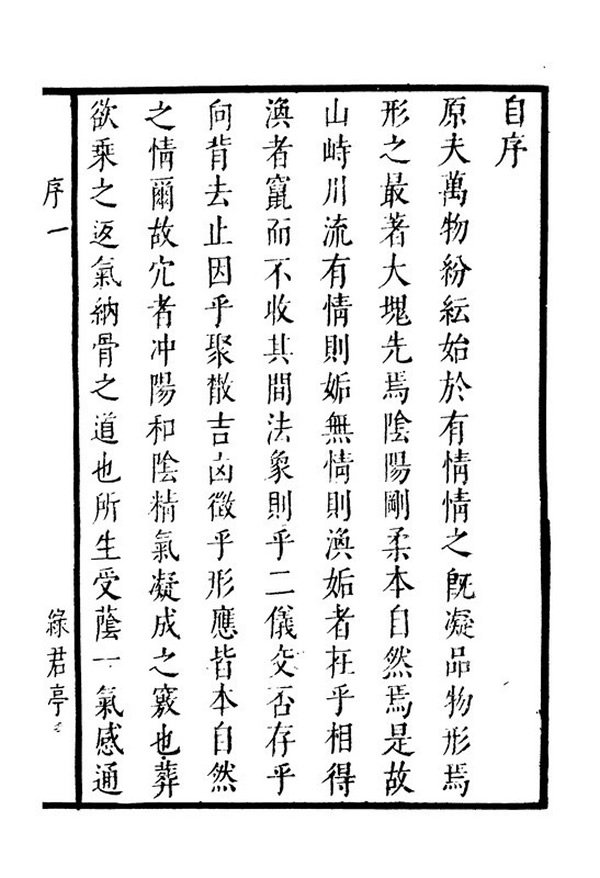 自序
原夫萬物紛紜始於有情情之旣凝品物形焉
形之最著大塊先焉陰陽剛柔本自然焉是故
山峙川流有情則姤無情則渙姤者在乎相得
渙者竄而不收其間法象則乎二儀交否存乎
向背去止因乎聚散吉凶徵乎形應皆本自然
之情爾故穴者冲陽和陰精氣凝成之竅也葬
欲乘之返氣納骨之道也所生受蔭一氣感通
序一
綠君亭